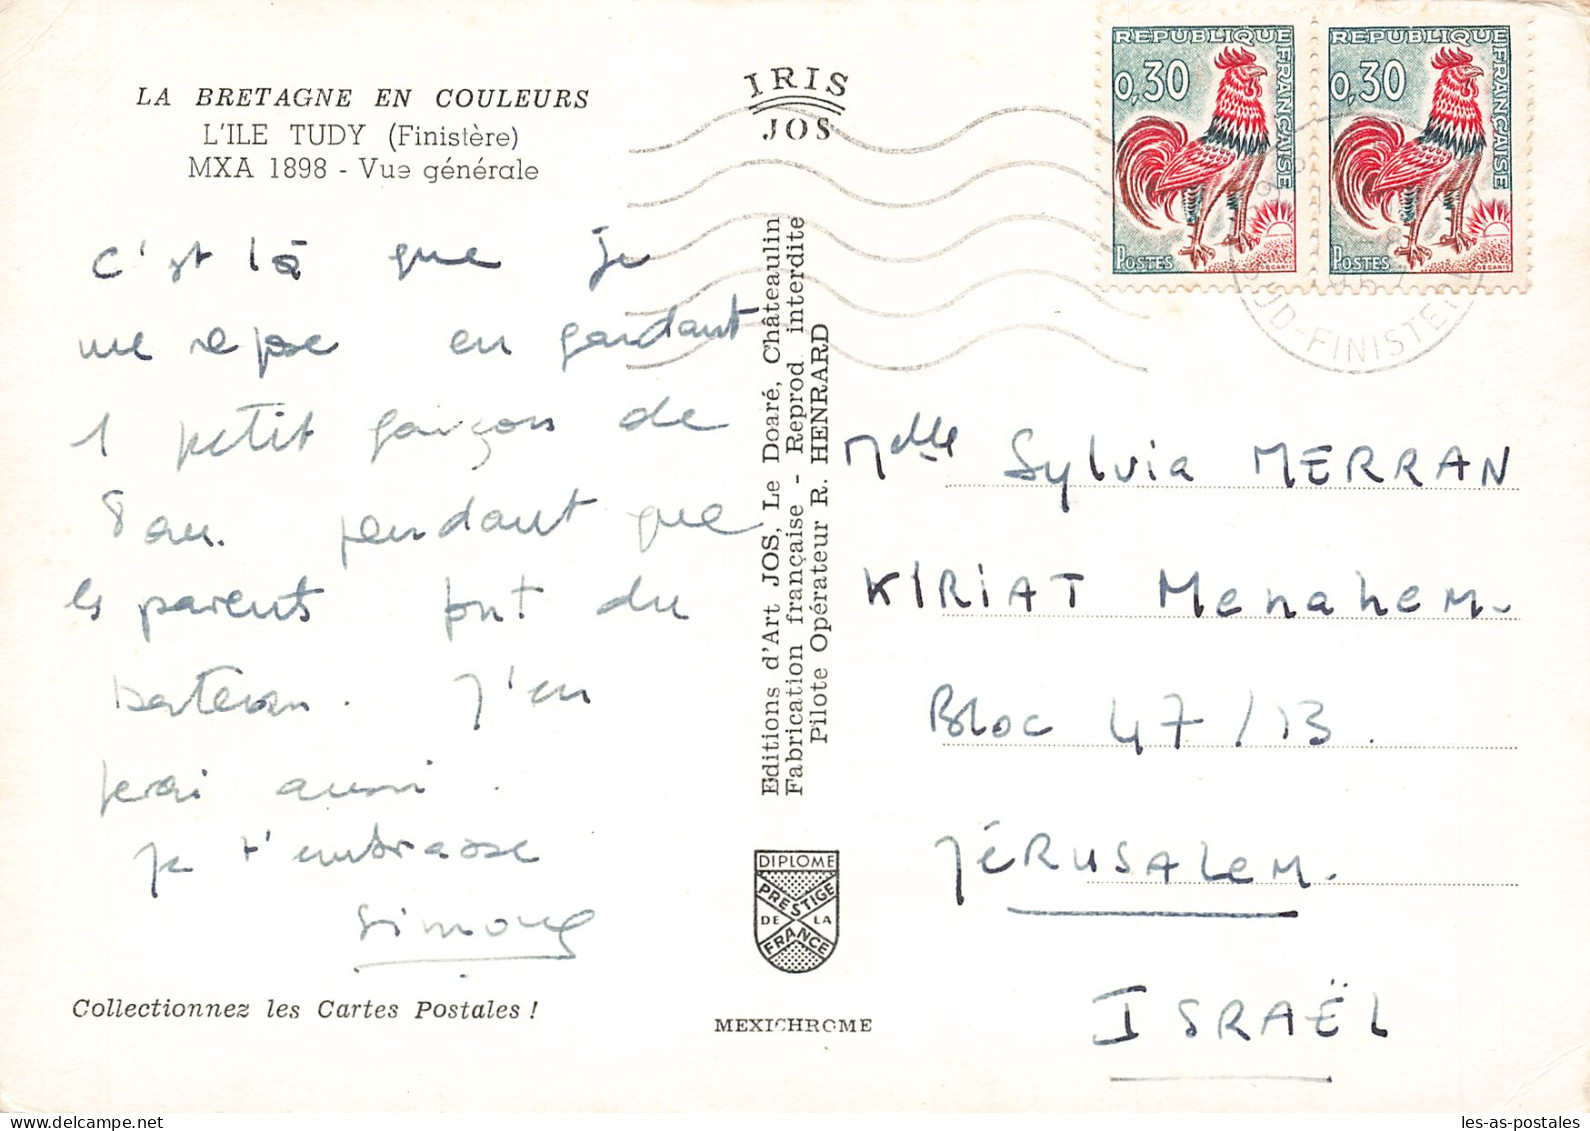 LA BRETAGNE EN COULEURS
L'ILE TUDY (Finistère)
MXA 1898 - Vue générale
c'est là que je
me repose en gardant
1 petit garçon de
8 ans. pendant que
les parents font du
bateau. J'en
ferai aussi.
je t'embrasse
Simone
Collectionnez les Cartes Postales !
IRIS
JOS
Editions d'Art JOS, Le Doaré, Châteaulin
Fabrication française - Reprod interdite
Pilote Opérateur R. HENRARD
DIPLOME
PRESTIGE
DE LA
FRANCE
MEXICHROME
REPUBLIQUE FRANÇAISE
0,30
POSTES
DECARIS
REPUBLIQUE FRANÇAISE
0,30
POSTES
DECARIS
SUD-FINISTERE
Mdlle Sylvia MERRAN
KIRIAT Menahem.
Bloc 47/13.
JÉRUSALEM.
ISRAËL
les-as-postales